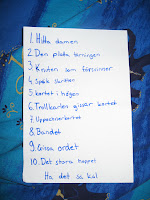 1. Hitta damen
2. Den platta tärningen
3. Knuten som försvinner
4. Spök skriften
5. kortet i högen
6. Trollkarlen gissar kortet
7. Uppochnerkortet
8. Bandet
9. Gissa ordet
10. Det stora hoppet
Ha det så kul